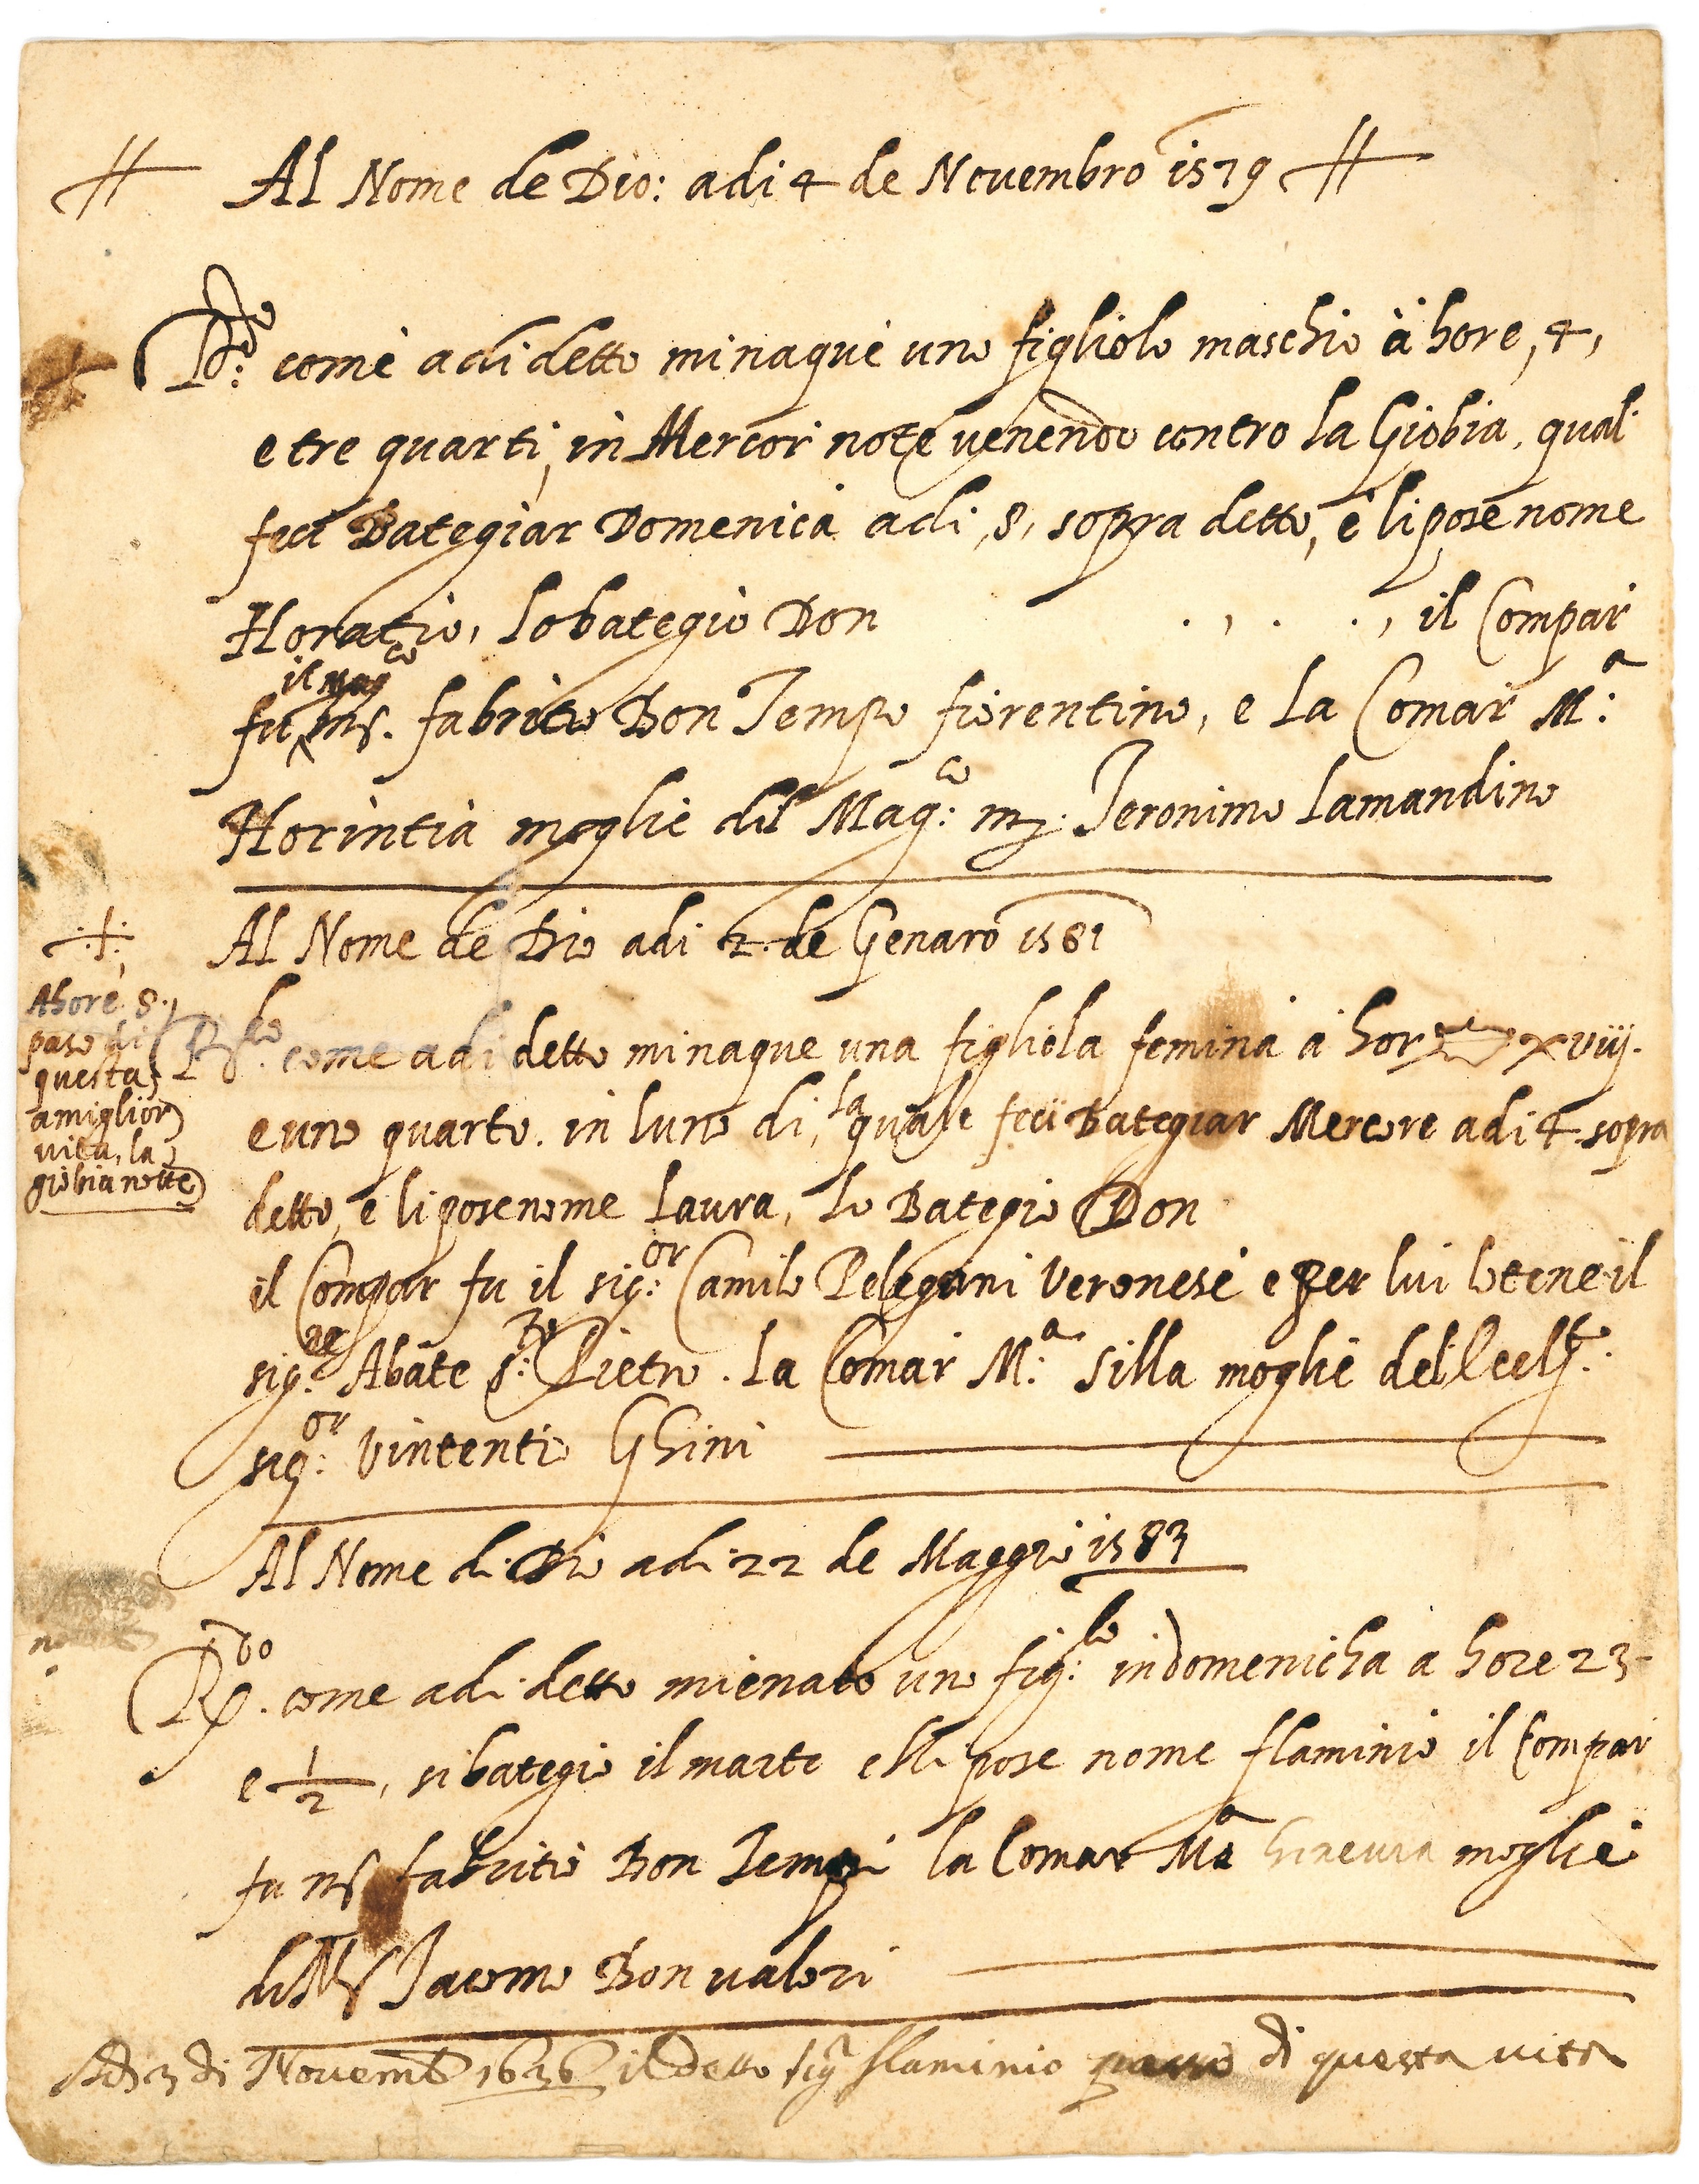 Al Nome de Dio: adi 4 de Novembro 1579
R.do come adi detto minaque uno figliolo maschio à hore, 4,
e tre quarti, in Mercor note venendo contro la Giobia, qual
feci Bategiar Domenica adi, 8, sopra detto, e li pose nome
Horatio, lo bategiò Don . , . . , il Compar
fu il Mag.co ms. fabritio Bon Tempo fiorentino, e la Comar M.a
Horintia moglie dil Mag.co ms. Jeronimo Lamandino
Al Nome de Dio adi 2. de Genaro 1581
Ahore 8.
paso di
questa
a miglior
vita, la
giobia notte
come adi detto minaque una figliola femina à hor xviij.
e uno quarto. in luno di, la quale feci Bategiar Mercore adi 4 sopra
detto, e li pose nome Laura, lo Bategio Don
il Compar fu il sig.or Camilo Pelegrini Veronese e per lui lo tene il
sig.or Abate Pietro. la Comar M.a Silla moglie del
sig.or Vintentio Ghini
Al Nome di Dio adi 22 de Maggio 1583
come adi detto mienato uno fig.lo in domenicha a hore 23
e 1/2, si bategio il marti e li pose nome flaminio il Compar
fu ms fabritio Bon Tempi la Comar M.a moglie
di Ms Jacomo Bonvalori
Adi 3 di Novemb 1636 il detto sig flaminio passò di questa vita